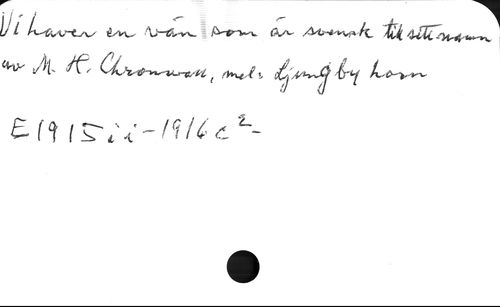 Vi haver en vän som är svensk till sitt namn
av M. H. Chronwall, mel: Ljungby horn
E1915ii-1916c²-